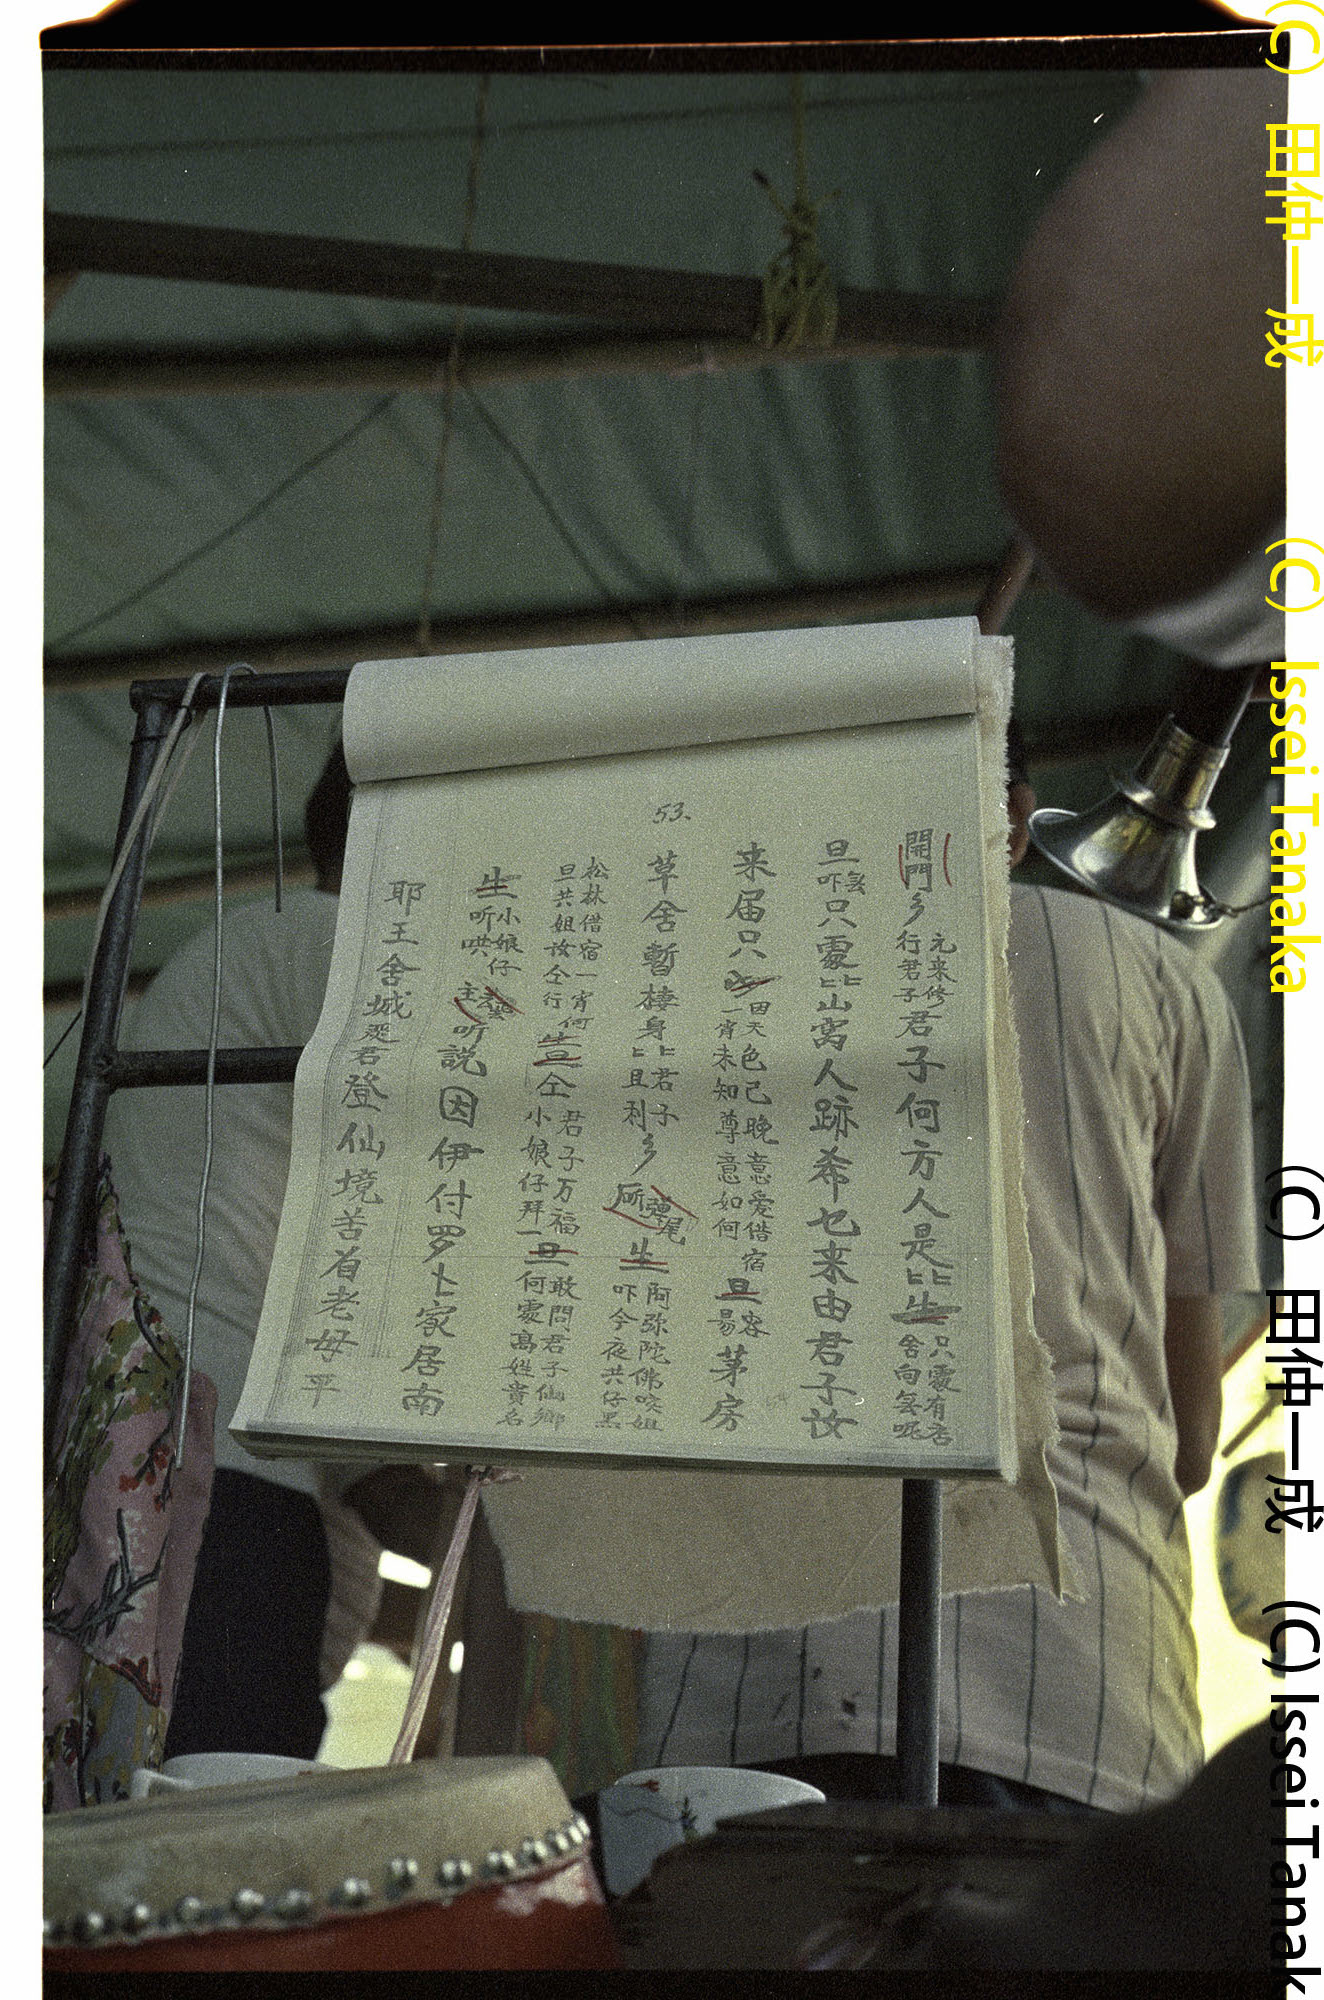 53.
開門 元来修行君子 君子何方人是 生 只處有舍
旦 只處 山窝人跡希 乜来由君子汝
来届只 因天色已晚意愛借宿一宵未知尊意如何 旦 容易 茅房
草舍暫棲身 君子且利 生 阿弥陀佛 姐 吓今夜共仔
松林借宿一宵何 旦共姐汝仝行 生旦仝 君子万福小娘仔拜 旦 敢問君子仙鄉何處高姓貴名
生 小娘仔听哄 听說因伊付罗卜家居南
耶王舍城 君登仙境苦 老母平
(C) 田仲一成 (C) Issei Tanaka
(C) 田仲一成 (C) Issei Tanak